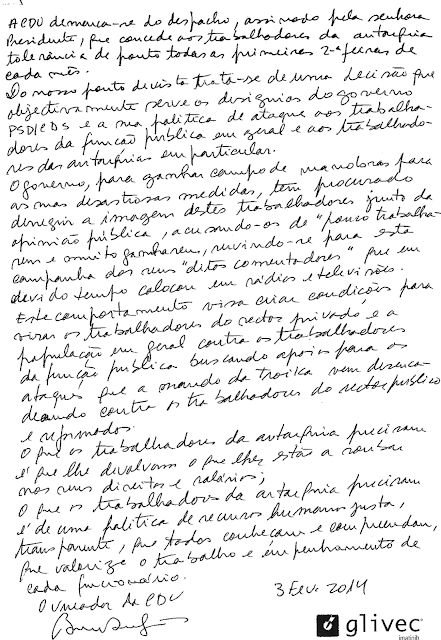 A CDU demarca-se do despacho, assinado pela senhora
Presidente, que concede aos trabalhadores da autarquia
tolerância de ponto todas as primeiras 2ªs feiras de
cada mês.
Do nosso ponto de vista trata-se de uma decisão que
objectivamente serve os desígnios do governo
PSD/CDS e a sua politica de ataque aos trabalha-
dores da função pública em geral e aos trabalhado-
res das autarquias em particular.
O governo, para ganhar campo de manobras para
as mas desastrosas medidas, tem procurado
denegrir a imagem destes trabalhadores junto da
opinião pública, acusando-os de "pouco trabalha-
rem e muito ganharem, servindo-se para esta
campanha dos seus "ditos comentadores" que em
devido tempo colocou em rádios e televisões.
Este comportamento visa criar condições para
virar os trabalhadores do sector privado, e a
população em geral contra os trabalhadores
da função pública buscando apoios para os
ataques que a mando da troika vem desenca-
deando contra os trabalhadores do sector público
e reformados.
O que os trabalhadores da autarquia precisam
é que lhe devolvam o que lhes estão a roubar
nos seus direitos e salários;
O que os trabalhadores da autarquia precisam
é de uma politica de recursos humanos justa,
transparente, que todos conheçam e compreendam,
que valorize o trabalho e empenhamento de
cada funcionário.
O vereador da CDU
3 Fev. 2014
glivec
imatinib